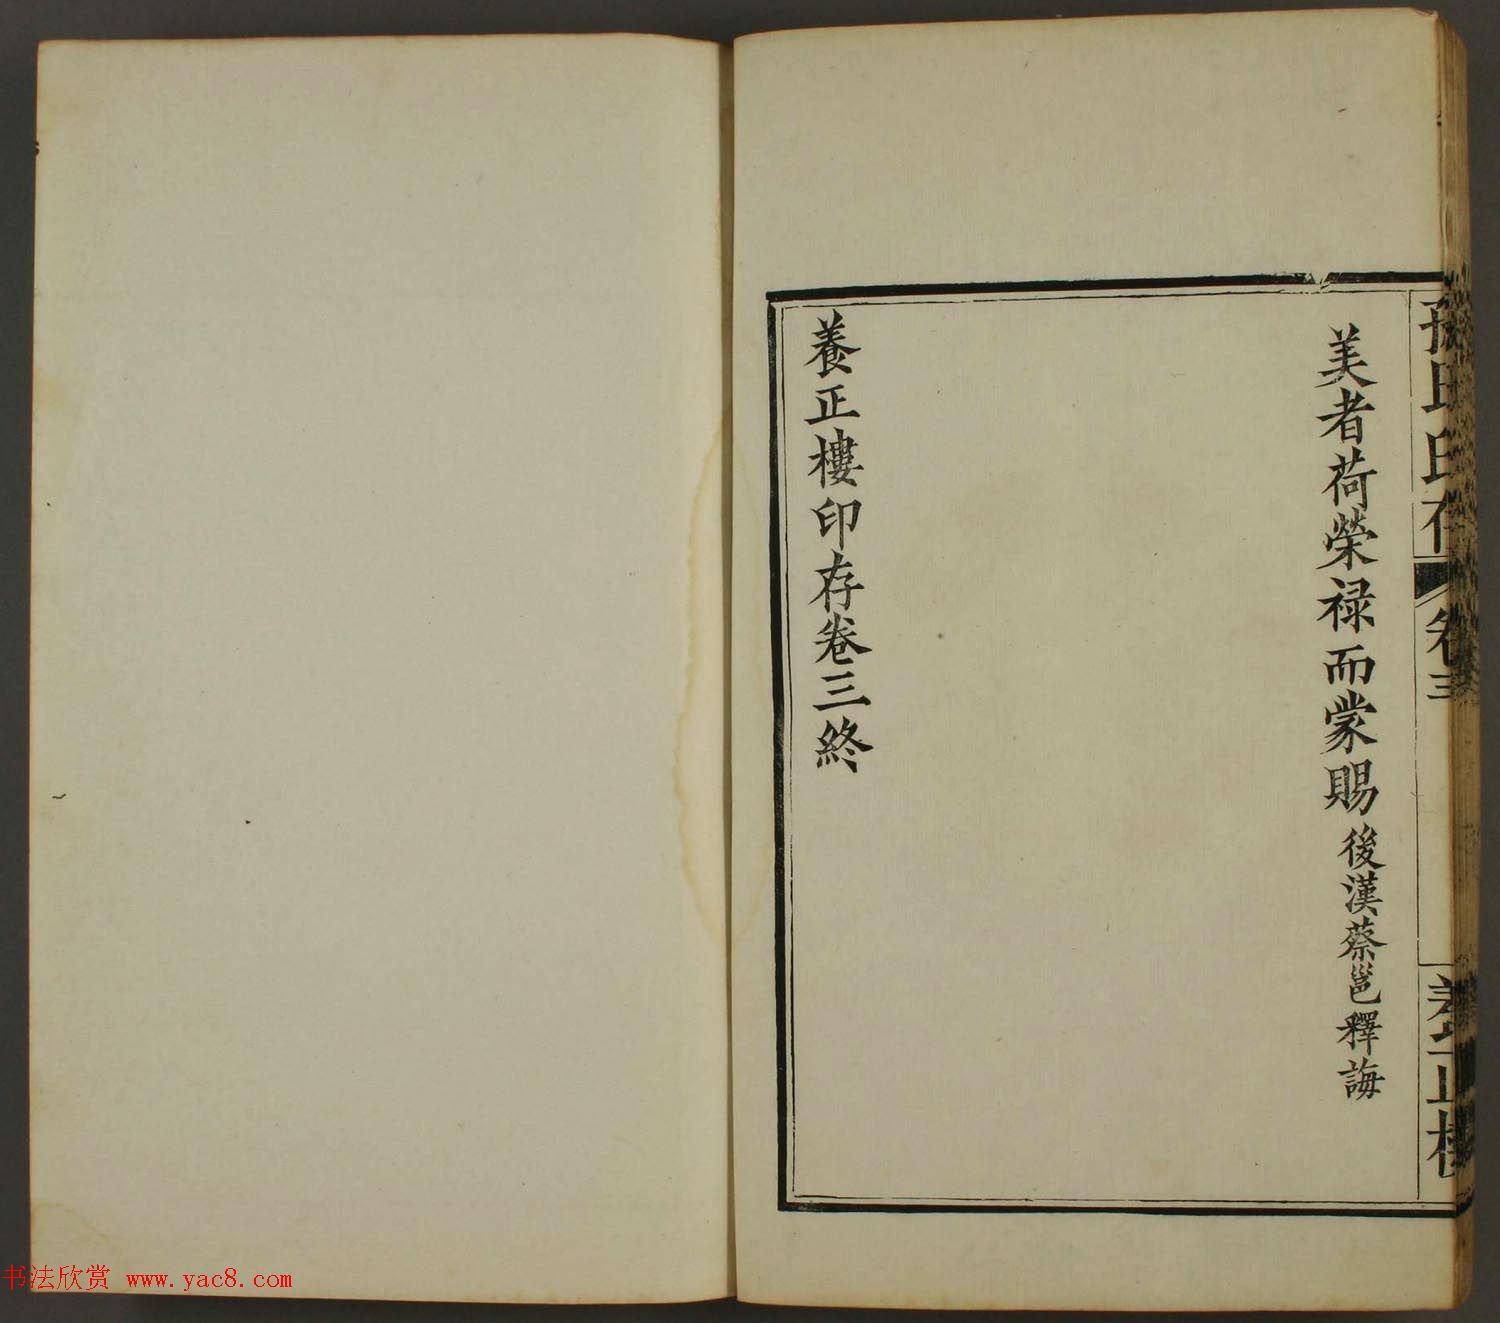 孫氏印存 卷三 養正樓
美者荷榮禄而蒙賜後漢蔡邕釋誨
養正樓印存卷三終
书法欣赏 www.yac8.com